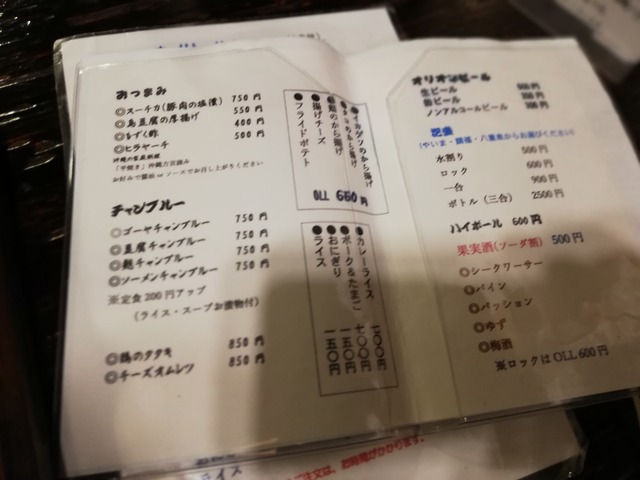 おつまみ
◎スーチカ(豚肉の塩漬) 750円
◎島豆腐の厚揚げ 550円
◎もずく酢 400円
◎ヒラヤーチ 500円
「平焼き」沖縄方言読み
お好みで醤油 or ソースでお召し上がりください
チャンプルー
◎ゴーヤチャンプルー 750円
◎豆腐チャンプルー 750円
◎麩チャンプルー 750円
◎ソーメンチャンプルー 750円
※定食 200円アップ
(ライス・スープお漬物付)
◎鶏のタタキ 850円
◎チーズオムレツ 850円
●イカゲソのから揚げ
のから揚げ
●鶏のから揚げ
●揚げチーズ
●フライドポテト
OLL 660円
●カレーライス
●ポーク&たまご 七〇〇円
●おにぎり 一五〇円
●ライス 一五〇円
オリオンビール
生ビール
缶ビール
ノンアルコールビール
泡盛
(やいま・請福・八重泉からお選びください)
水割り 500円
ロック 600円
一合 900円
ボトル(三合) 2500円
ハイボール 600円
果実酒(ソーダ割) 500円
◎シークワーサー
◎パイン
◎パッション
◎ゆず
◎梅酒
※ロックはOLL 600円
ライス
ご注文は、お時間がかかります。